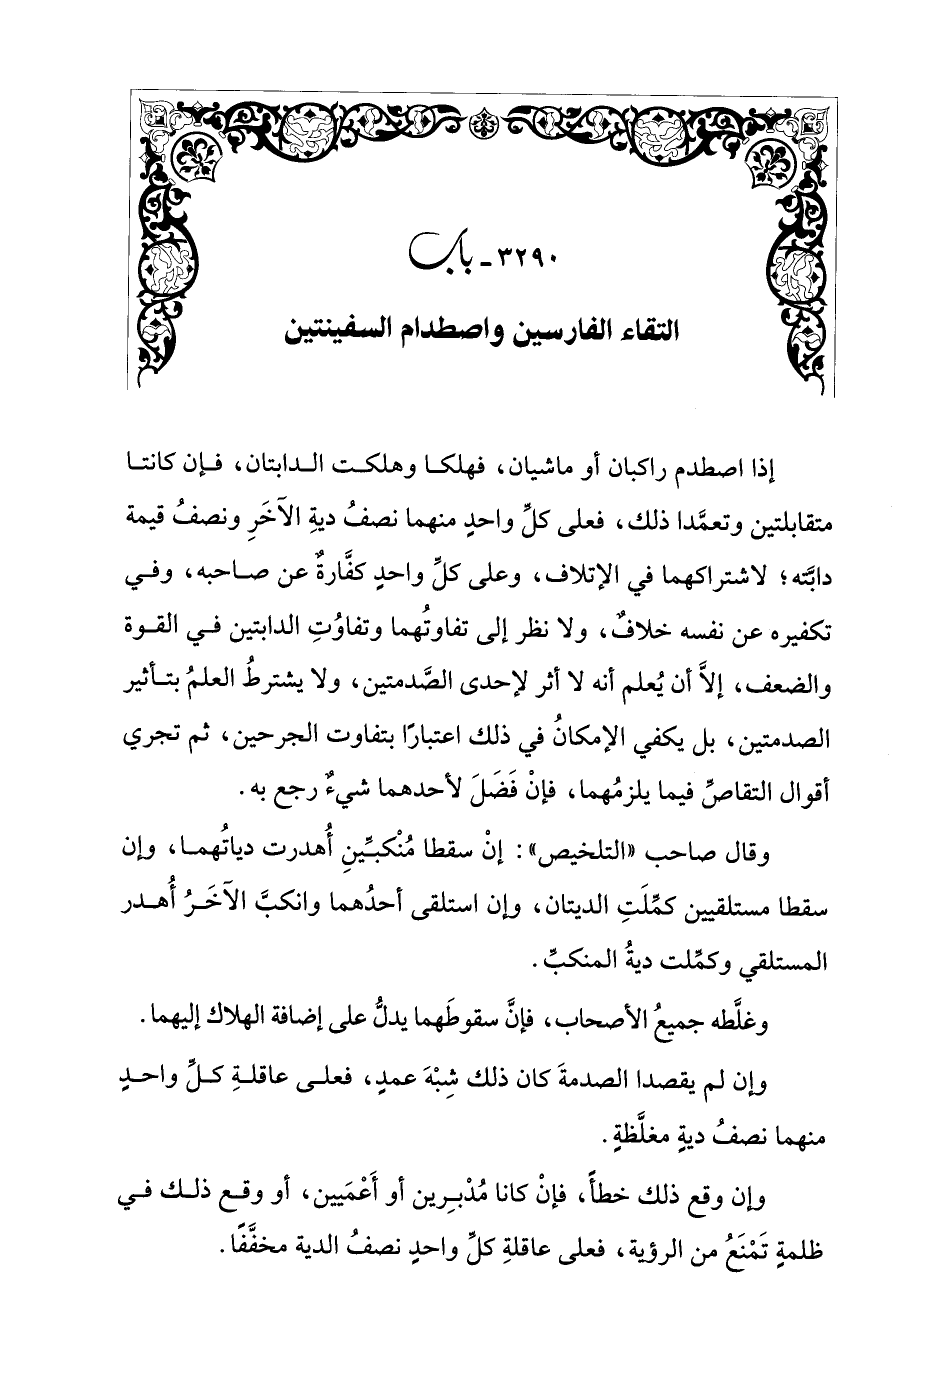 ٣٢٩٠ - باب
التقاء الفارسين واصطدام السفينتين
إذا اصطدم راكبان أو ماشيان، فهلكا وهلكت الدابتان، فإن كانتا
متقابلتين وتعمَّدا ذلك، فعلى كلِّ واحدٍ منهما نصفُ ديةِ الآخَرِ ونصفُ قيمة
دابَّته؛ لاشتراكهما في الإتلاف، وعلى كلِّ واحدٍ كفَّارةٌ عن صاحبه، وفي
تكفيره عن نفسه خلافٌ، ولا نظر إلى تفاوتُهما وتفاوُتِ الدابتين في القوة
والضعف، إلاَّ أن يُعلم أنه لا أثر لإحدى الصَّدمتين، ولا يشترطُ العلمُ بتأثير
الصدمتين، بل يكفي الإمكانُ في ذلك اعتبارًا بتفاوت الجرحين، ثم تجري
أقوال التقاصِّ فيما يلزمُهما، فإنْ فَضَلَ لأحدهما شيءٌ رجع به.
وقال صاحب «التلخيص»: إنْ سقطا مُنْكبِّينِ أُهدرت دياتُهما، وإن
سقطا مستلقيين كمِّلَتِ الديتان، وإن استلقى أحدُهما وانكبَّ الآخَرُ أُهدر
المستلقي وكمِّلت ديةُ المنكبِّ.
وغلَّطه جميعُ الأصحاب، فإنَّ سقوطَهما يدلُّ على إضافة الهلاك إليهما.
وإن لم يقصدا الصدمةَ كان ذلك شِبْهَ عمدٍ، فعلى عاقلةِ كلِّ واحدٍ
منهما نصفُ ديةٍ مغلَّظةٍ.
وإن وقع ذلك خطأً، فإنْ كانا مُدْبِرين أو أَعْمَيين، أو وقع ذلك في
ظلمةٍ تَمْنَعُ من الرؤية، فعلى عاقلةِ كلِّ واحدٍ نصفُ الدية مخفَّفًا.